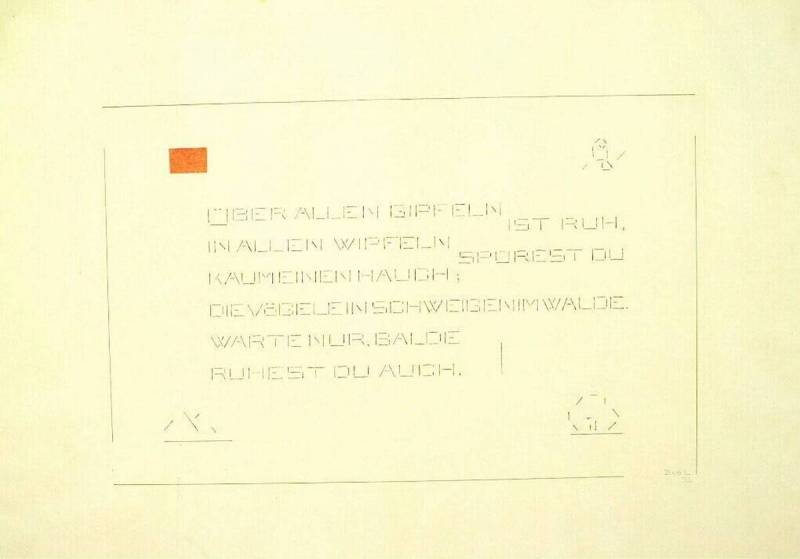 ÜBER ALLEN GIPFELN IST RUH,
IN ALLEN WIPFELN SPÜREST DU
KAUM EINEN HAUCH;
DIE VÖGELEIN SCHWEIGEN IM WALDE.
WARTE NUR, BALDE
RUHEST DU AUCH.